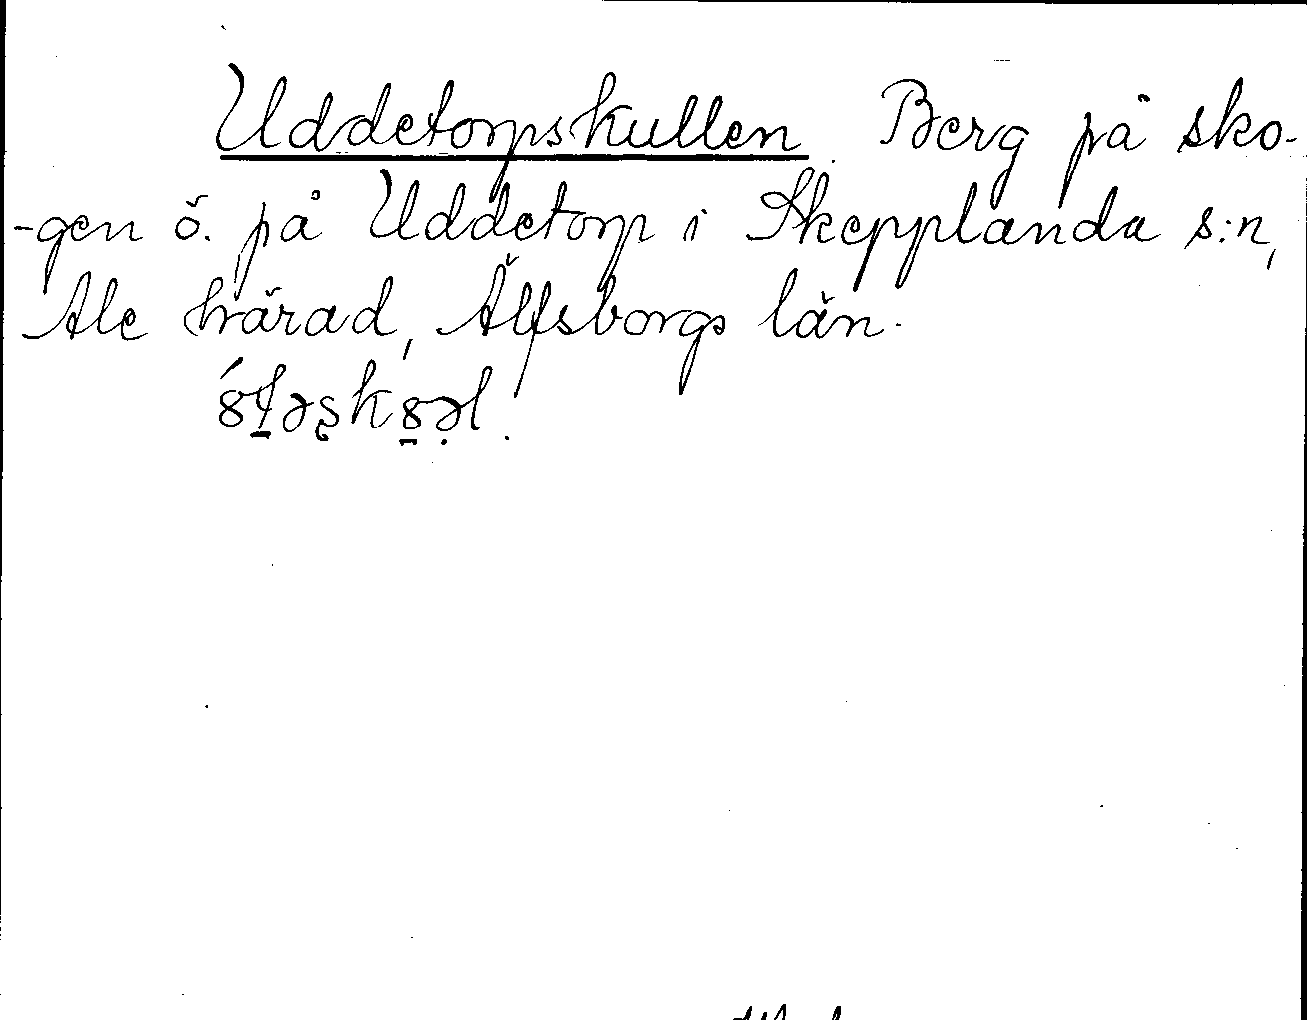 Uddetorpskullen. Berg på sko-
-gen ö. på Uddetorp i Skepplanda s:n,
Ale härad, Älfsborgs län.